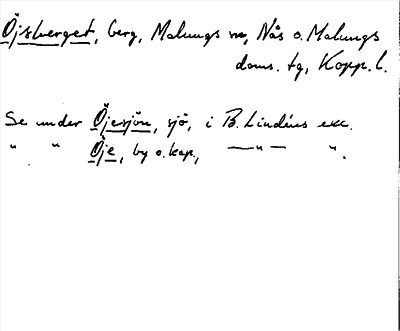 Öjsberget, berg, Malungs sn, Nås o. Malungs
doms. tg, Kopp. l.
Se under Öjesjön, sjö, i B. Lindéns exc.
" " Öje, by o. kap., —"— ".